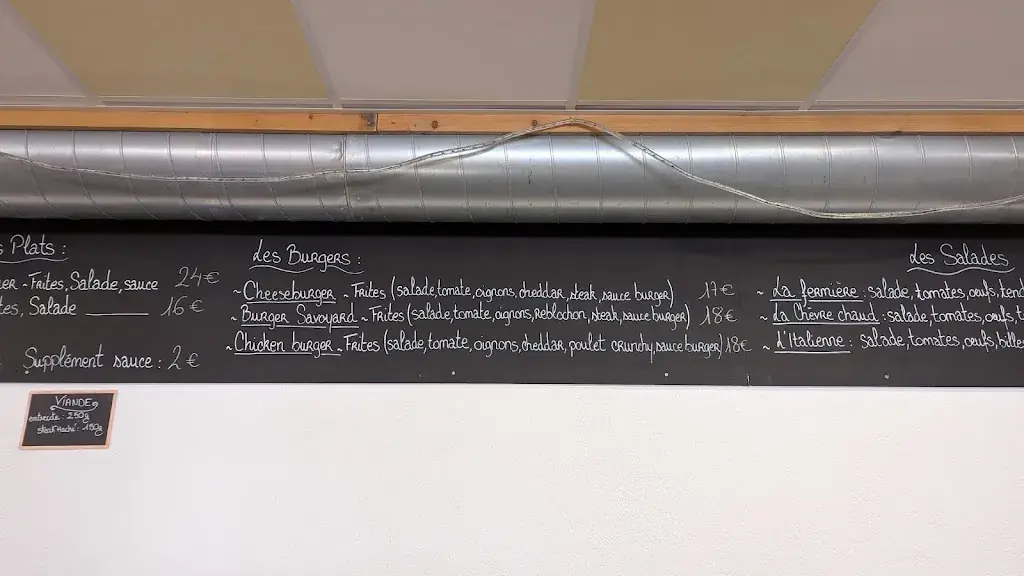 s Plats :
er - Frites, Salade, sauce 24€
tes, Salade 16€
Supplément sauce : 2€
Les Burgers :
~ Cheeseburger - Frites (salade, tomate, oignons, cheddar, steak, sauce burger) 17€
~ Burger Savoyard - Frites (salade, tomate, oignons, reblochon, steak, sauce burger) 18€
~ Chicken burger - Frites (salade, tomate, oignons, cheddar, poulet crunchy, sauce burger) 18€
Les Salades
~ La fermière : salade, tomates, oeufs, tend
~ La Chèvre chaud : salade, tomates, oeufs, t
~ L'Italienne : salade, tomates, oeufs, bille
VIANDE
entrecôte : 250g
steak haché : 150g